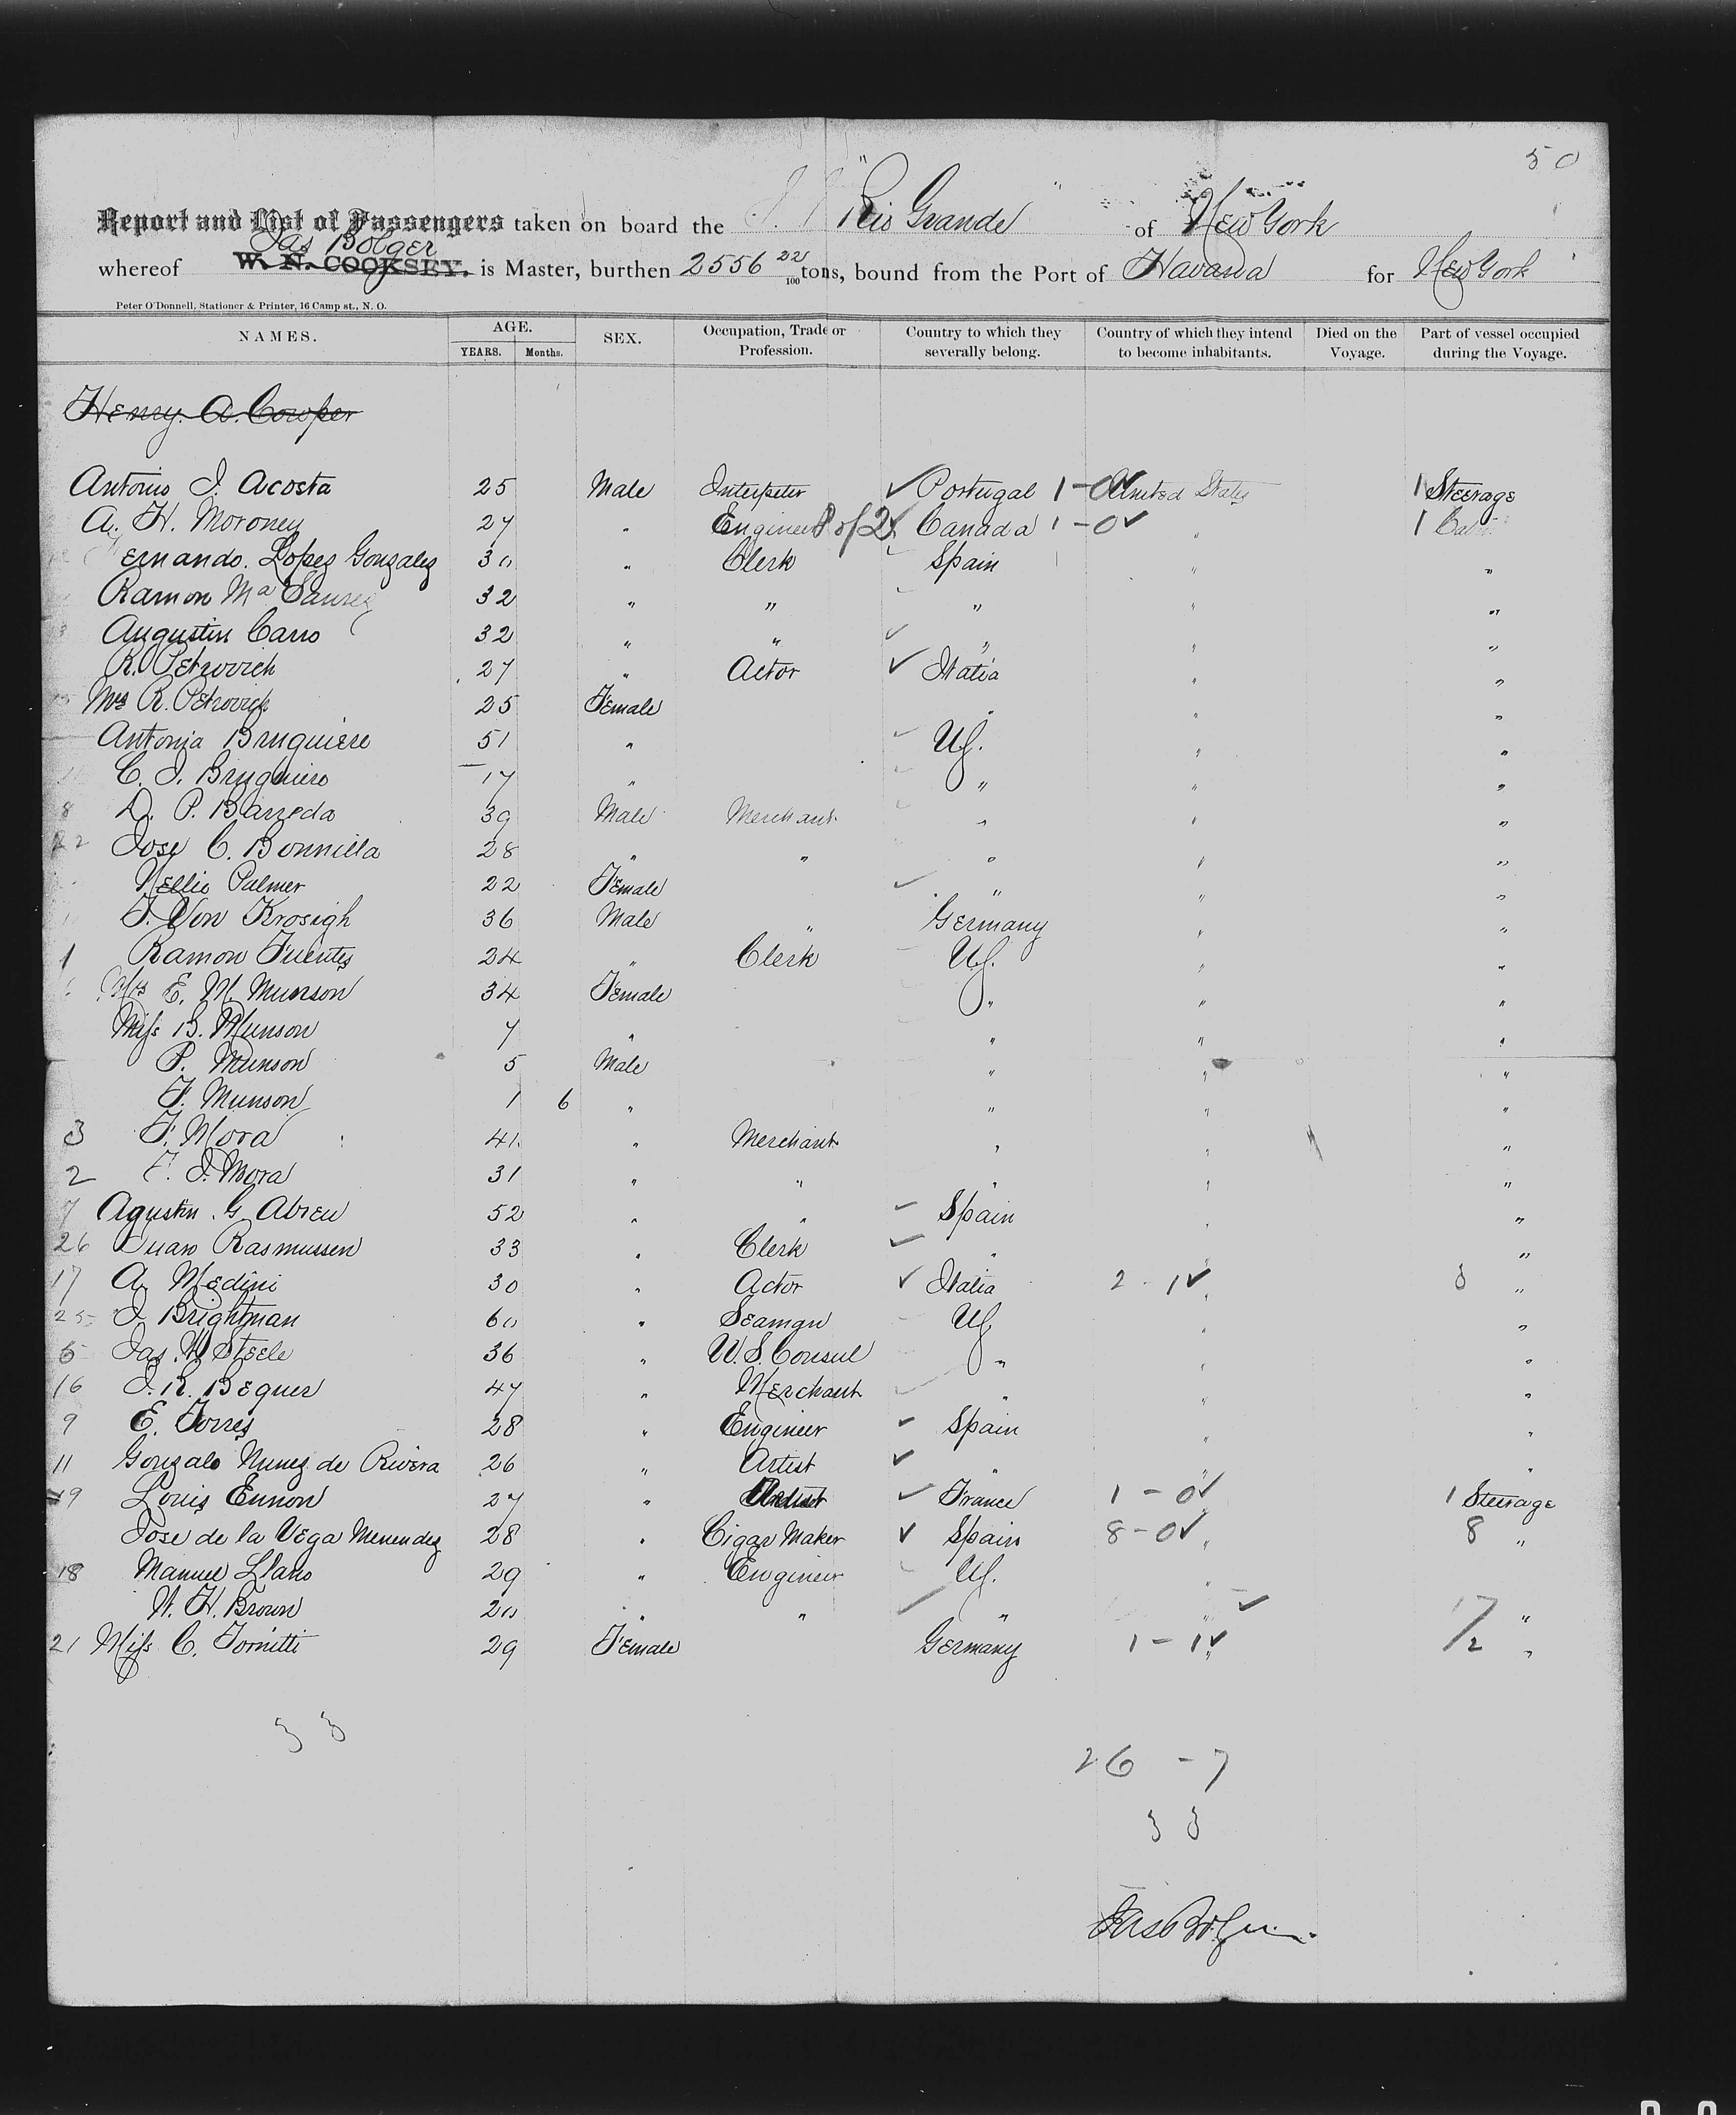 50
Report and List of Passengers taken on board the S. S. "Rio Grande" of New York
Jas Bolger
whereof W. N. COOKSEY. is Master, burthen 2556 22/100 tons, bound from the Port of Havana for New York
Peter O'Donnell, Stationer & Printer, 16 Camp st., N. O.
NAMES. AGE. YEARS. Months. SEX. Occupation, Trade or Profession. Country to which they severally belong. Country of which they intend to become inhabitants. Died on the Voyage. Part of vessel occupied during the Voyage.
Henry. A. Cowper
Antonio J. Acosta 25 Male Interpeter ✓ Portugal 1-0✓ United States 1 Steerage
A. H. Moroney 27 " Engineer P of 2 ✓ Canada 1-0✓ " 1 Cabin
ernando. Lopez Gonzalez 30 " Clerk Spain " "
Ramon Ma 32 " " " " "
Augustin Carro 32 " " ✓ " " "
R. Petrovich 27 " Actor ✓ Italia " "
Mrs R. Petrovich 25 Female " " "
Antonia Bruguiere 51 " US. " "
C. J. Bruguiere 17 " " " "
8 D. P. Barreda 39 Male Merchant " " "
22 Jose C. Bonnilla 28 " " " " "
Nellie Palmer 22 Female ✓ " " "
F. Von Krosigh 36 Male " Germany " "
1 Ramon Fuentes 24 " Clerk US. " "
Mrs E. M. Munson 34 Female " " "
Miss B. Munson 7 " " " "
P. Munson 5 Male " " "
F. Munson 1 6 " " " "
3 F. Mora 41 " Merchant " " "
2 F. J. Mora 31 " " " " "
7 Agustin. G. Abreu 52 " " ✓ Spain " "
26 Juan Rasmussen 33 " Clerk ✓ " " "
17 A. Medini 30 " Actor ✓ Italia 2-1✓ " 3 "
25 J. Brightman 60 " Seaman US. " "
5 Jas. W Steele 36 " U. S. Consul " " "
16 J. R. Bequer 47 " Merchant ✓ " " "
9 E. Torres 28 " Engineer ✓ Spain " "
11 Gonzalo Nunez de Rivera 26 " Artist ✓ " " "
19 Louis Ennon 27 " ✓ France 1-0✓ 1 Steerage
Jose de la Vega Menendez 28 " Cigar Maker ✓ Spain 8-0✓ " 8 "
18 Manuel Llano 29 " Engineer US. "
W. H. Brown 20 " " ✓ " " ✓ 17 "
21 Miss C. Tornitti 29 Female Germany 1-1✓ " /2 "
33
26 - 7
33
Jas Bolger